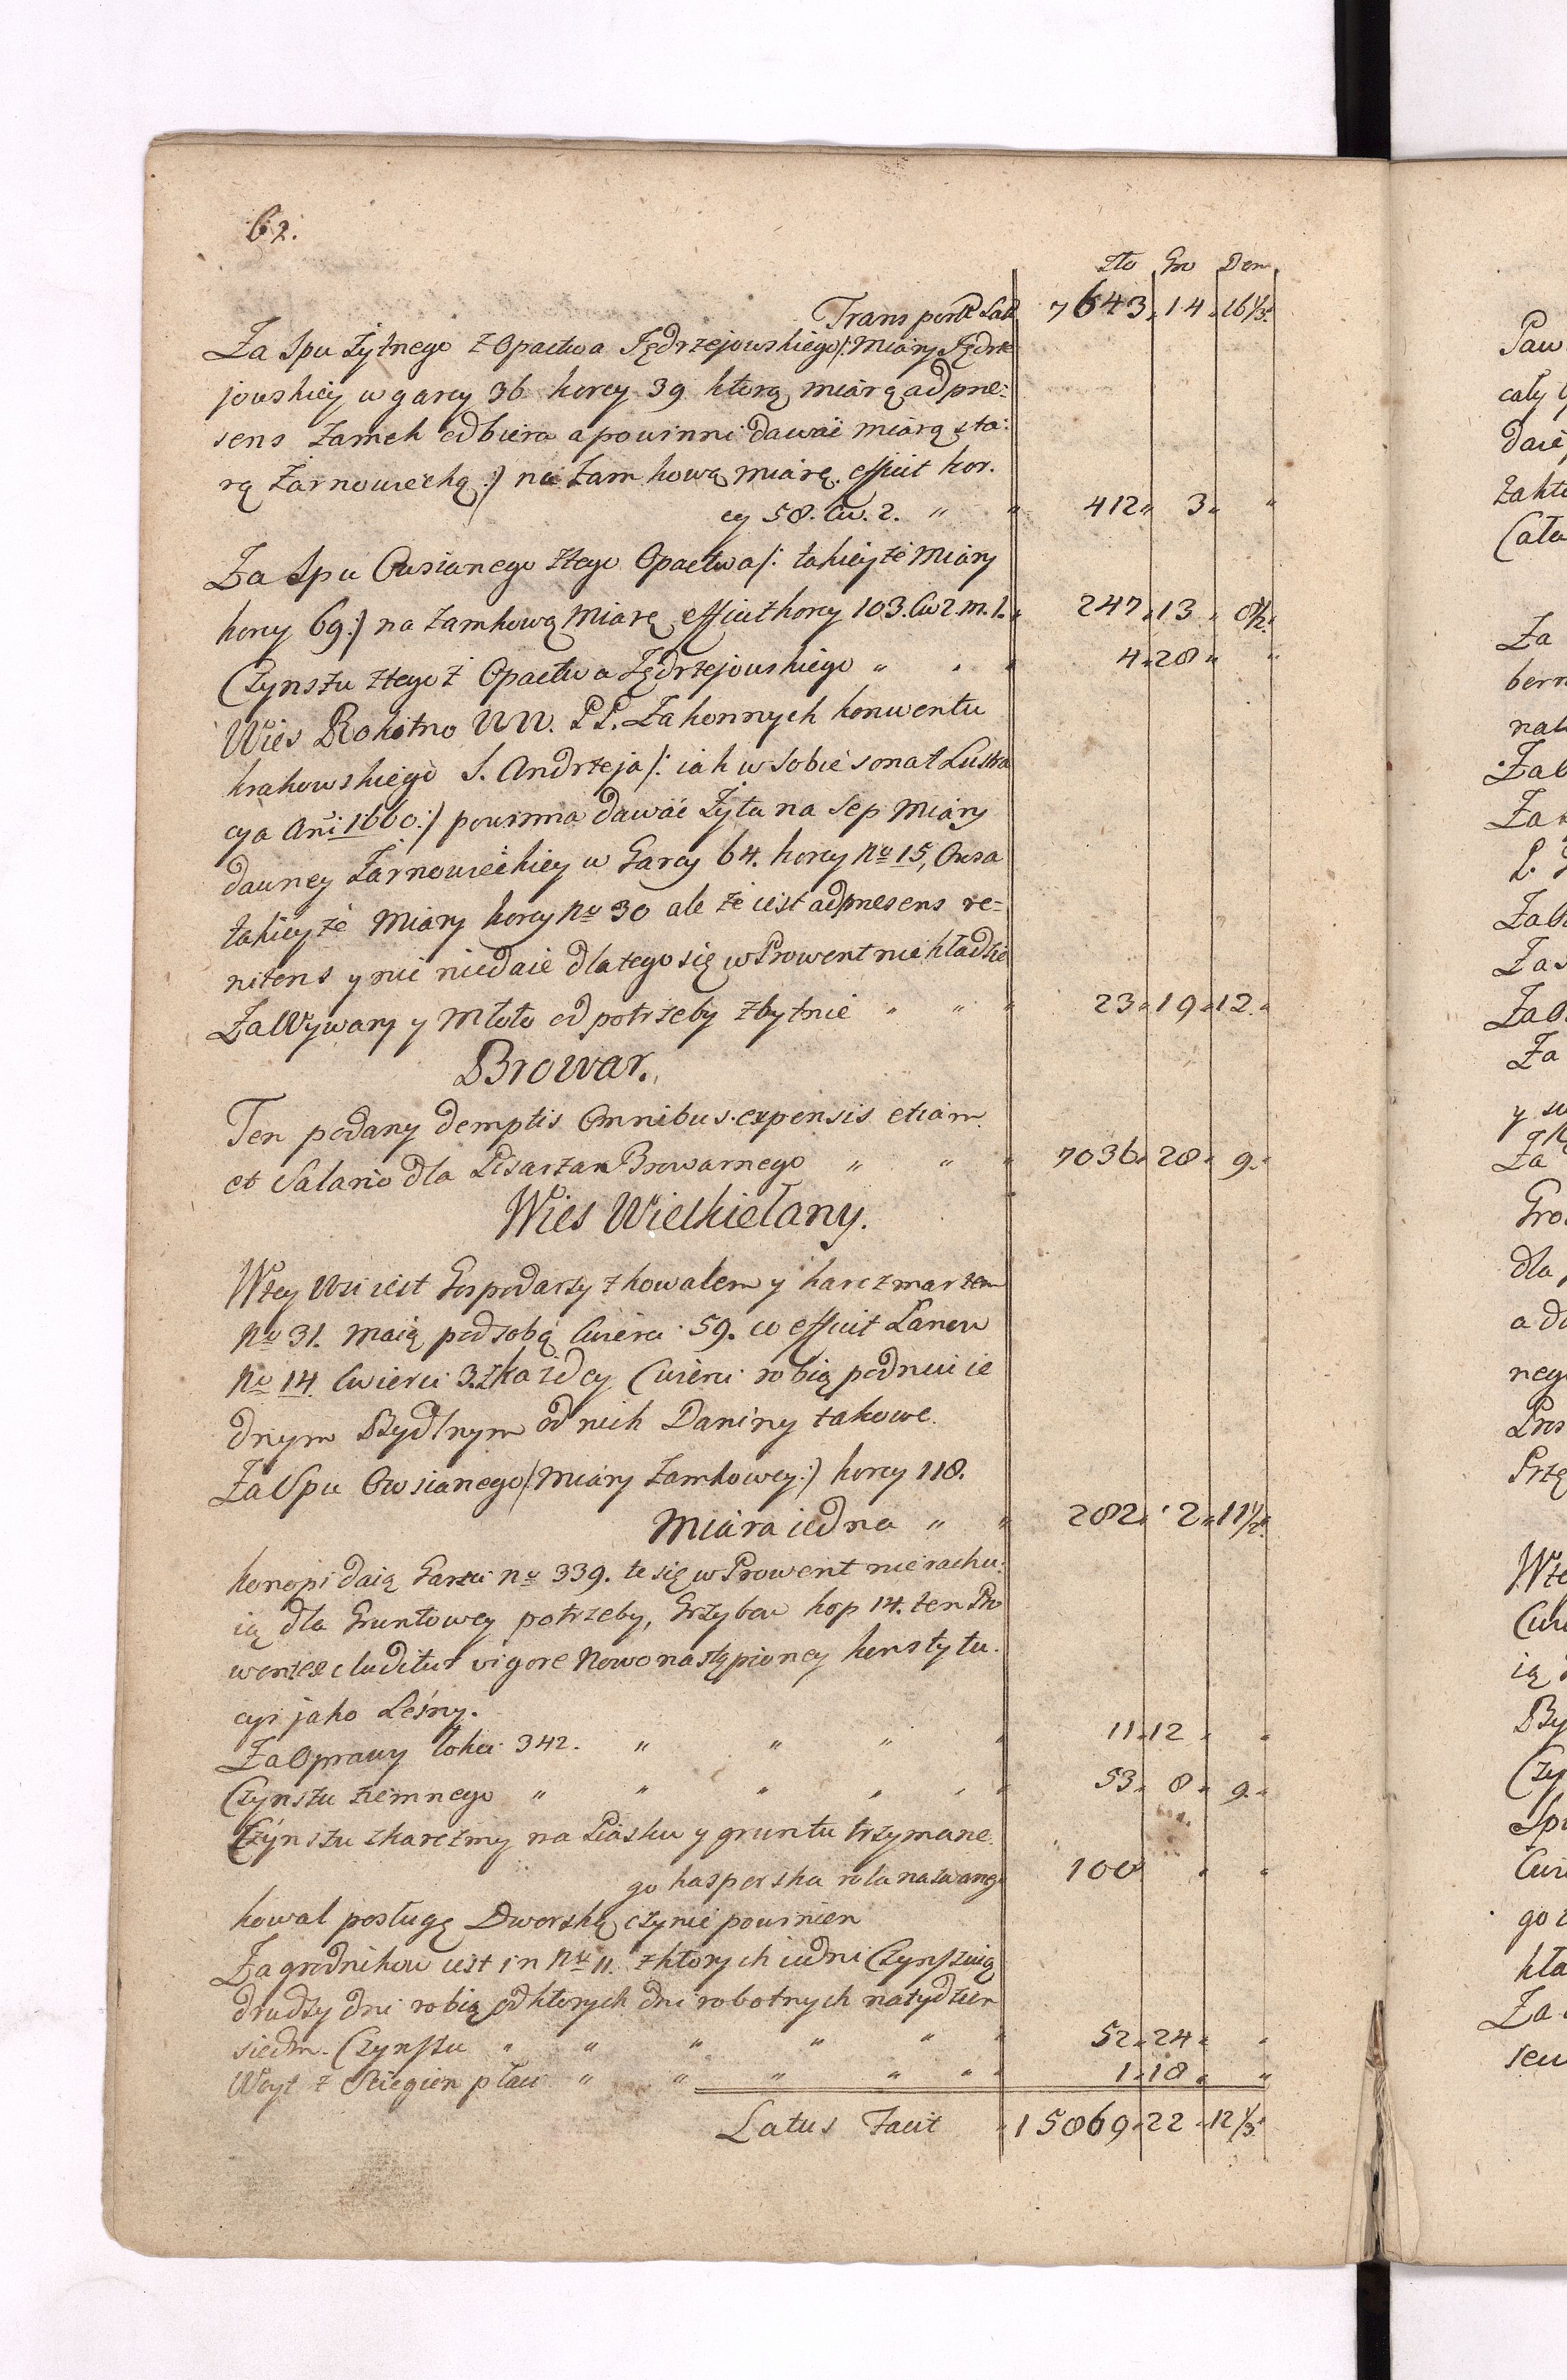 62.
Zło Gro Den
Transport Lat. 7643. 14. 16 1/3.
Za Spu Żytnego z Opactwa Jędrzejowskiego /: Miary Jędrze
jowskiey w garcy 36 korcy 39 którą miarą ad prae:
sens Zamek odbiera a powinni dawać miarą sta:
rą Żarnowiecką :/ na Zamkową miarę efficit kor.
cy 58. Cw. 2. " " 412 " 3 " "
Za Spu Owsianego z tego Opactwa /: takieyże Miary
korcy 69 :/ na Zamkową Miarę efficit korcy 103. Cw 2. m. 1. " 247 " 13 " 8 1/2.
Czynszu z tegoż Opactwa Jędrzejowskiego " " " 4 " 28 " "
Wieś Rokitno WW. PP. Zakonnych konwentu
krakowskiego S. Andrzeja /: iak w sobie sonat Lustra
cya Ani 1660 :/ powinna dawać Żyta na Sep Miary
dawney Żarnowieckiey w Garcy 64. korcy No 15, Owsa
takieyże Miary korcy No 30 ale że iest ad praesens re=
nitens y nic niedaie dlatego się w Prowent nie kładzie
Za Wywary y Młóto od potrzeby zbytnie " " " 23 " 19 " 12. "
Browar.
Ten podany demptis Omnibus expensis etiam
et Salario dla Pisarza Browarnego " " " 7036 " 28 " 9. "
Wies Wielkiełany.
W tey Wsi iest Gospodarzy z kowalem y karczmarzem
No 31. maią pod sobą Cwierci 59. co efficit Łanow
No 14. Cwierci 3. z każdey Cwierci robią po dniu ie
dnym Bydlnym od nich Daniny takowe.
Za Spu Owsianego /: Miary Zamkowey :/ korcy 118.
Miara iedna " " 282 " 2 " 11 1/2.
konopi daią Garści No 339. te się w Prowent nie rachu:
ią dla Gruntowey potrzeby, Grzybow kop 14. ten Pro
went excluditur vigore Nowo nastąpioney konstytu.
cyi jako Leśny.
Za Oprawy łokci 342. " " " " 11 " 12 " "
Czynszu ziemnego " " " " " " 53 " 8 " 9. "
Czynszu z karczmy na Piasku y gruntu trzymane.
go kasperska rola nazwang. 100 " "
kowal posługę Dworską czynić powinien
Zagrodnikow iest in No 11. z ktorych iedni Czynszuią
drudzy dni robią od ktorych dni robotnych na tydzien
siedm. Czynszu " " " " " " 52 " 24 " "
Woyt z Sciegien płaci " " " " " " 1 " 18 " "
Latus Facit " 15869 " 22 " 12 1/3.